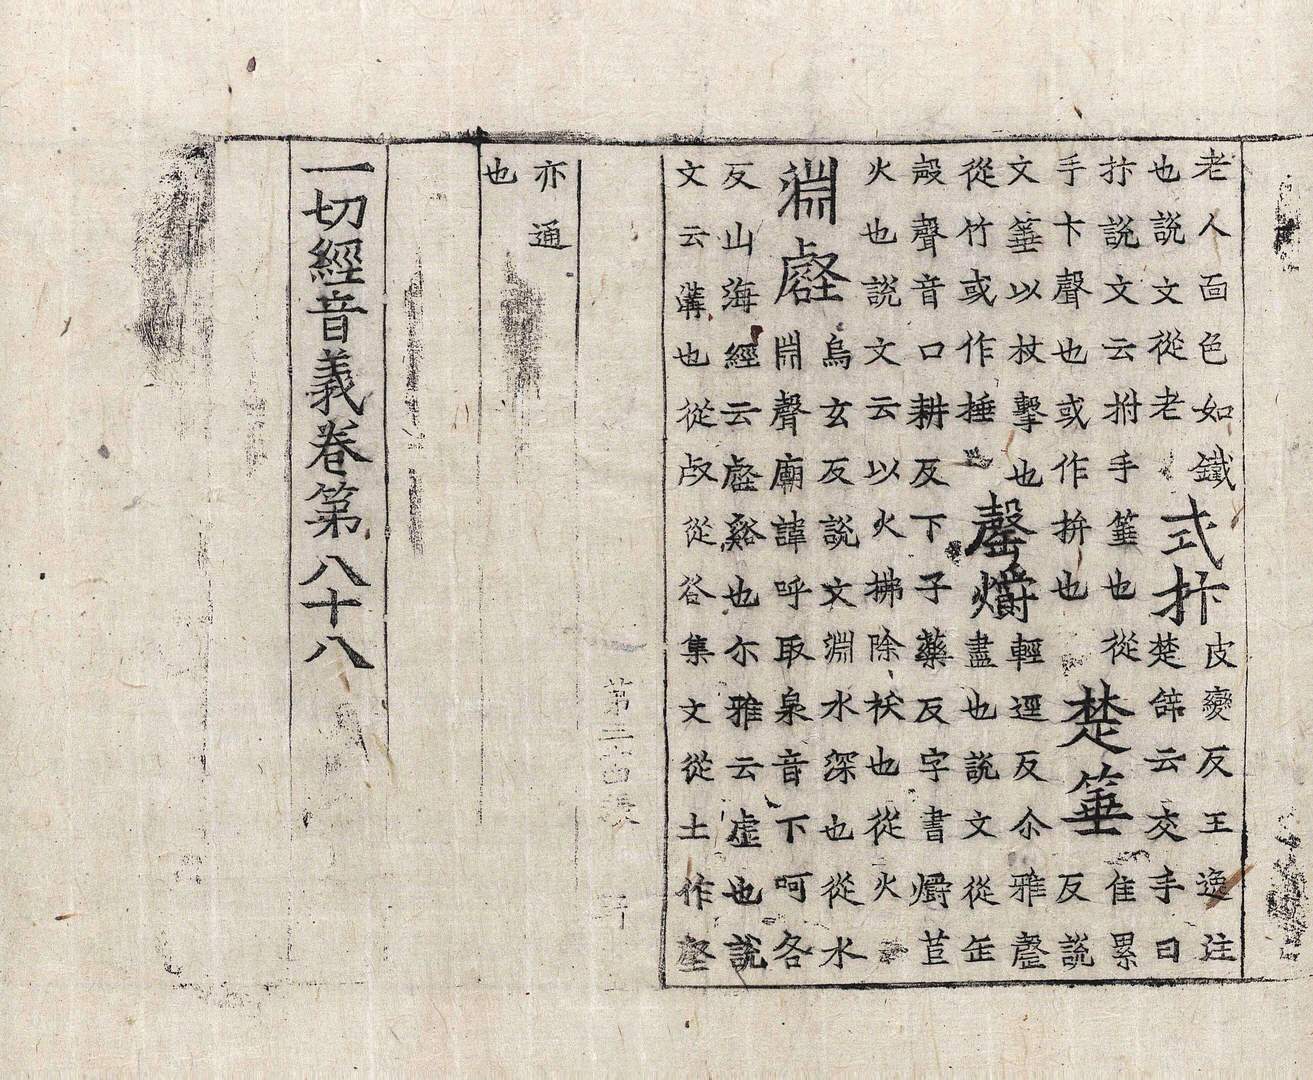 老人面色如鐵
也說文從老
式抃
皮變反王逸注
楚辝云交手曰
抃說文云拊手箠也從
手卞聲也或作拚也
楚箠
隹累
反說
文箠以杖擊也
從竹或作捶
罄爝
輕逕反尒雅罄
盡也說文從缶
殸聲音口耕反下子藥反字書爝苣
火也說文云以火拂除祅也從火
淵壑
烏玄反說文淵水深也從水
𣶒聲廟諱呼取泉音下呵各
反山海經云壑谿也尒雅云虛也說
文云溝也從𣦻從谷集文從土作壑
亦通
也
一切經音義卷第八十八